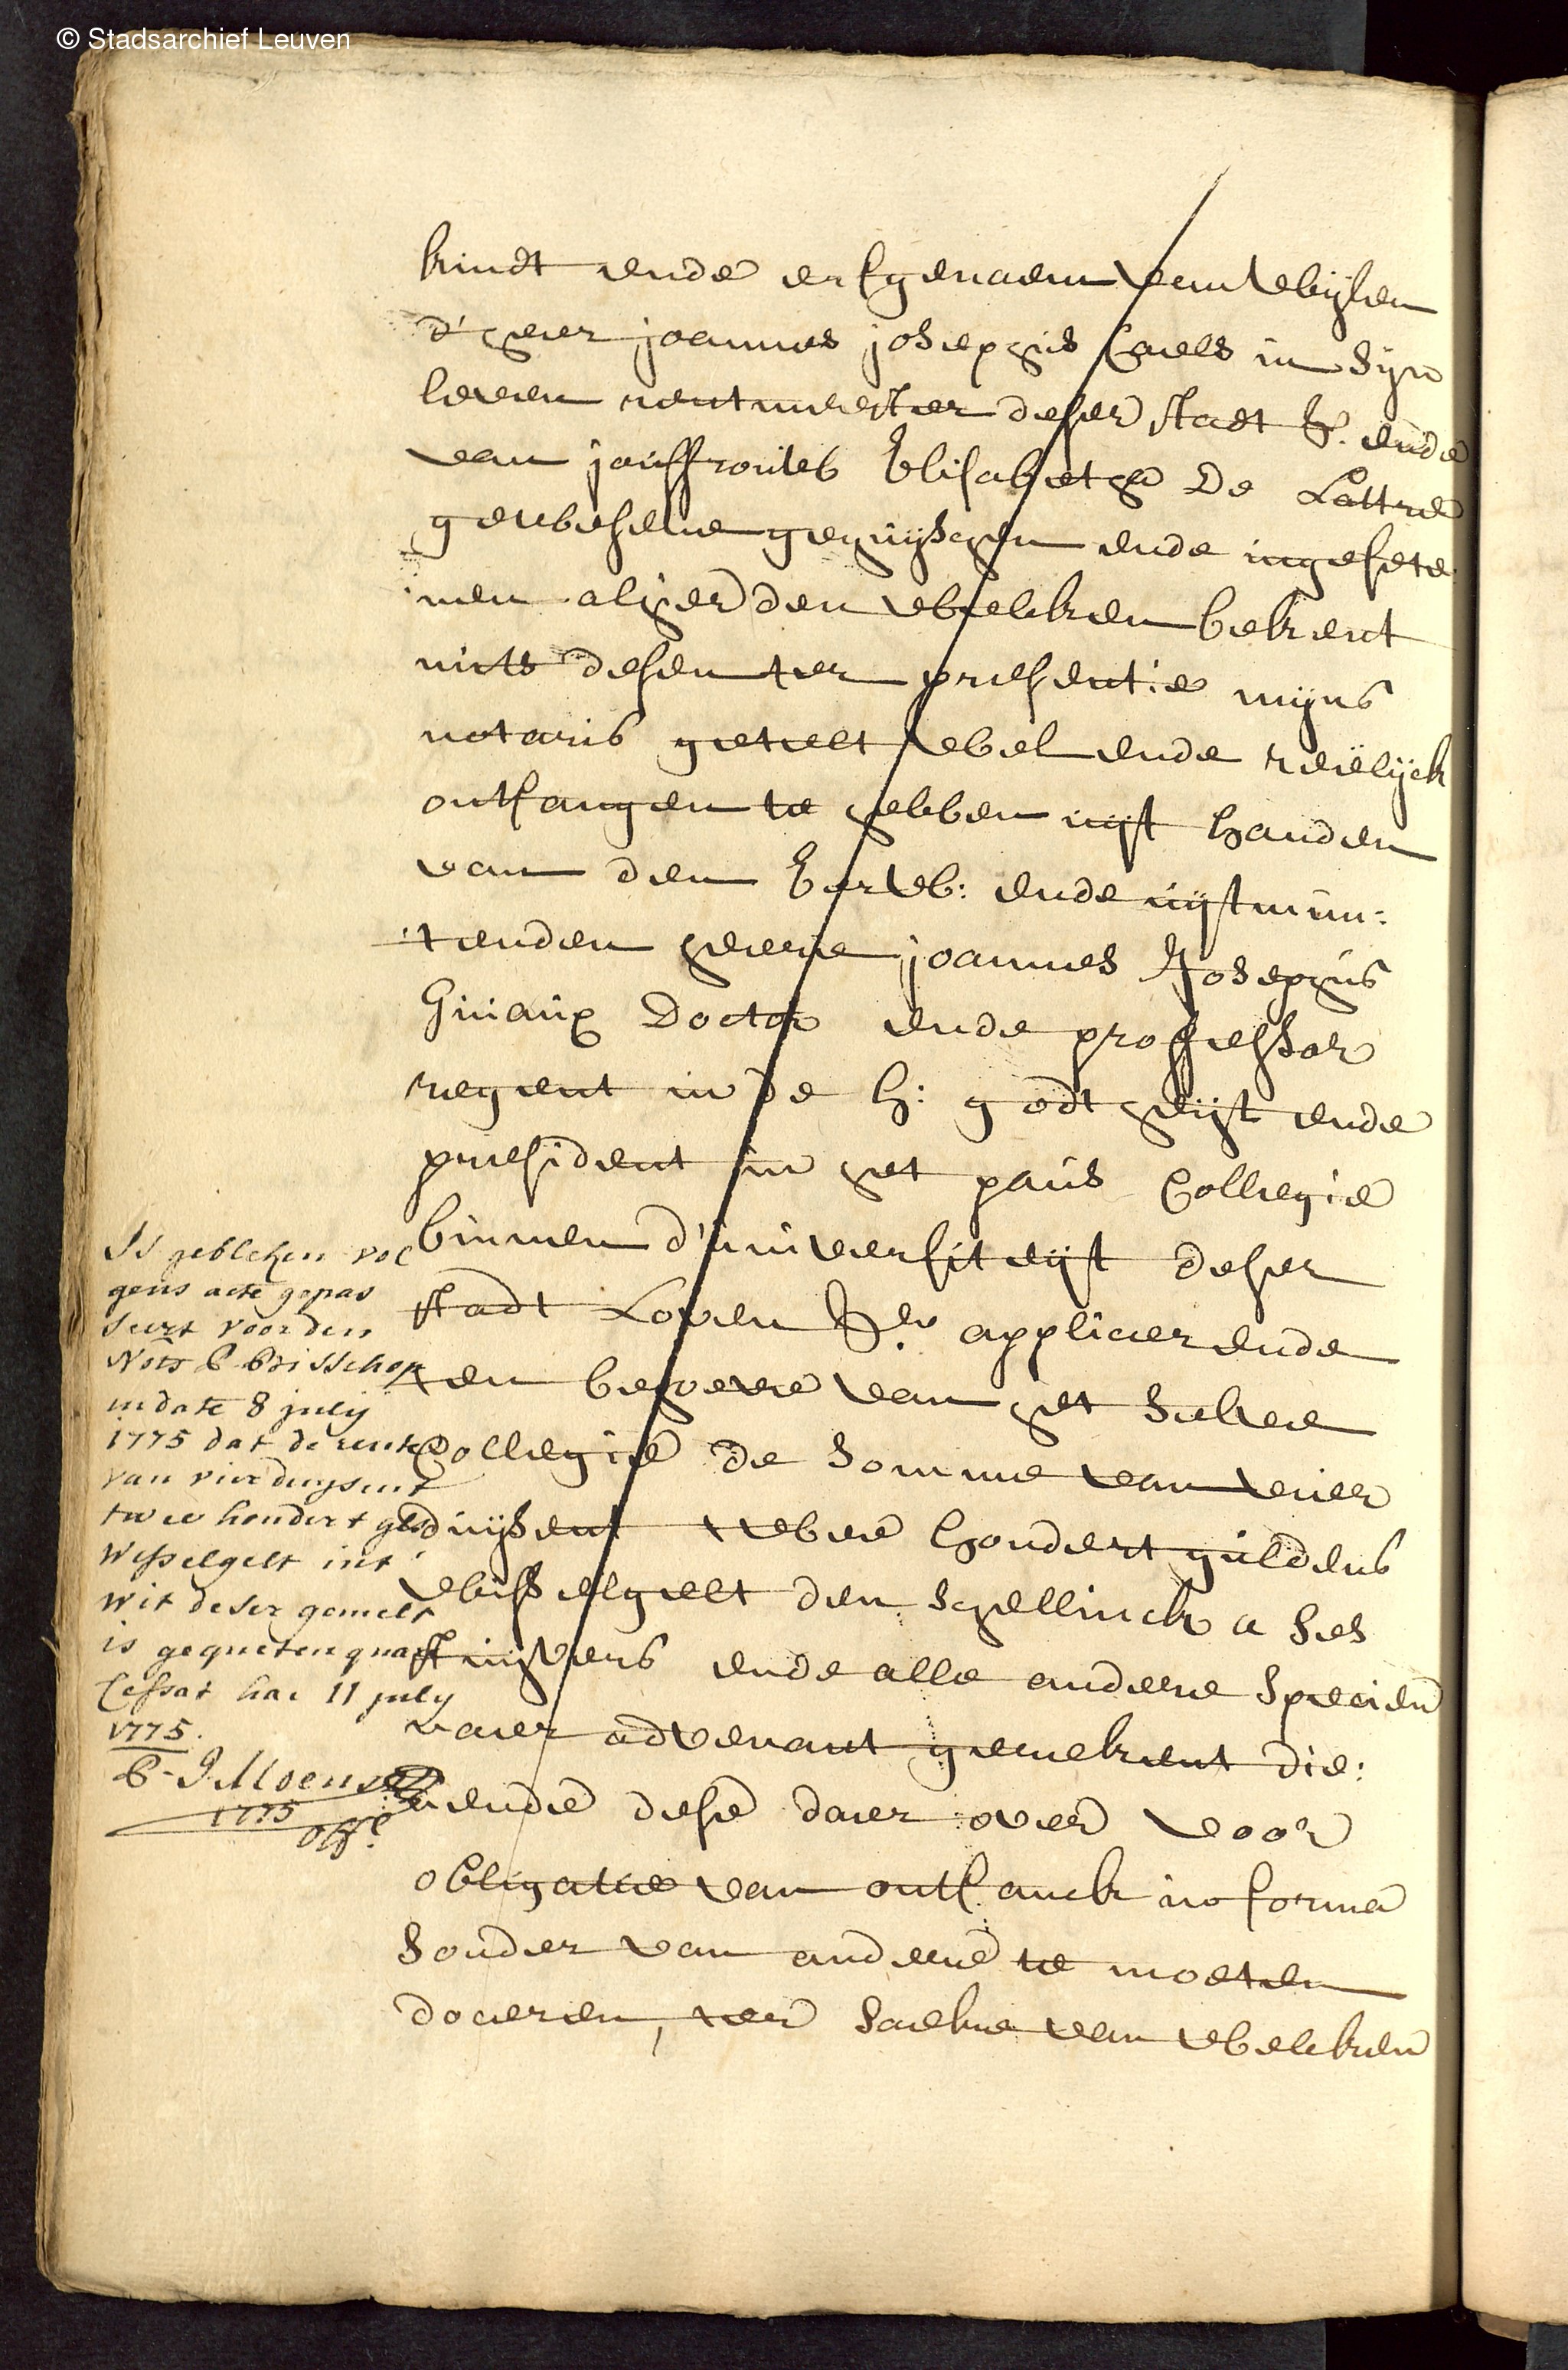 © Stadsarchief Leuven
kindt ende erfgenaem van wijlen
d'heer joannes josephus Caels in sijn
leven rentmeester deser stadt &. ende
van jouffrouwe Elisabetha De Lattre
gewesene gehuijschen ende ingesete
nen alhier den welcken bekent
mits desen ter presentie mijns
notaris getelt wel ende reëelijck
ontfangen te hebben uijt handen
van den Eerw: ende uijtmun:
tenden heere joannes Josephus
Guiaux Doctor ende professor
regent in de h: godtheijt ende
president in het paus Collegie
binnen d'universiteijt deser
stadt Loven &a. applicerende
ten behoeve van het selve
Collegie de somme van vier
duijsent twee hondert guldens
wisselgelt den schellinck a ses
stuijvers ende alle andere specien
naer advenant gerekent die:
nende dese daer over voor
obligatie van ontfanck in forma
sonder van andere te moeten
doceren, ter saeke van welcken
Is gebleken vol
gens acte gepas
seert voor den
Nots B Bisschop
in date 8 julij
1775 dat de rente
van vier duysent
twee hondert gls
Wisselgelt int
wit deser gemelt
is gequeten quare
Cessat hac 11 july
1775.
B-J Moens
1775
off.